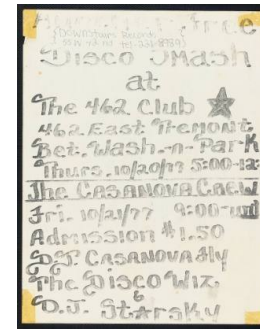 Free
Downstairs Records
Disco Smash
at
The 462 Club
462 East Tremont
Bet. Wash.-n-Park
Thurs. 10/20/77 5:00-12:
The CASANOVA CREW
Fri. 10/21/77 9:00-until
Admission $1.50
D.J. CASANOVA Fly
The Disco Wiz
&
D.J. Starsky